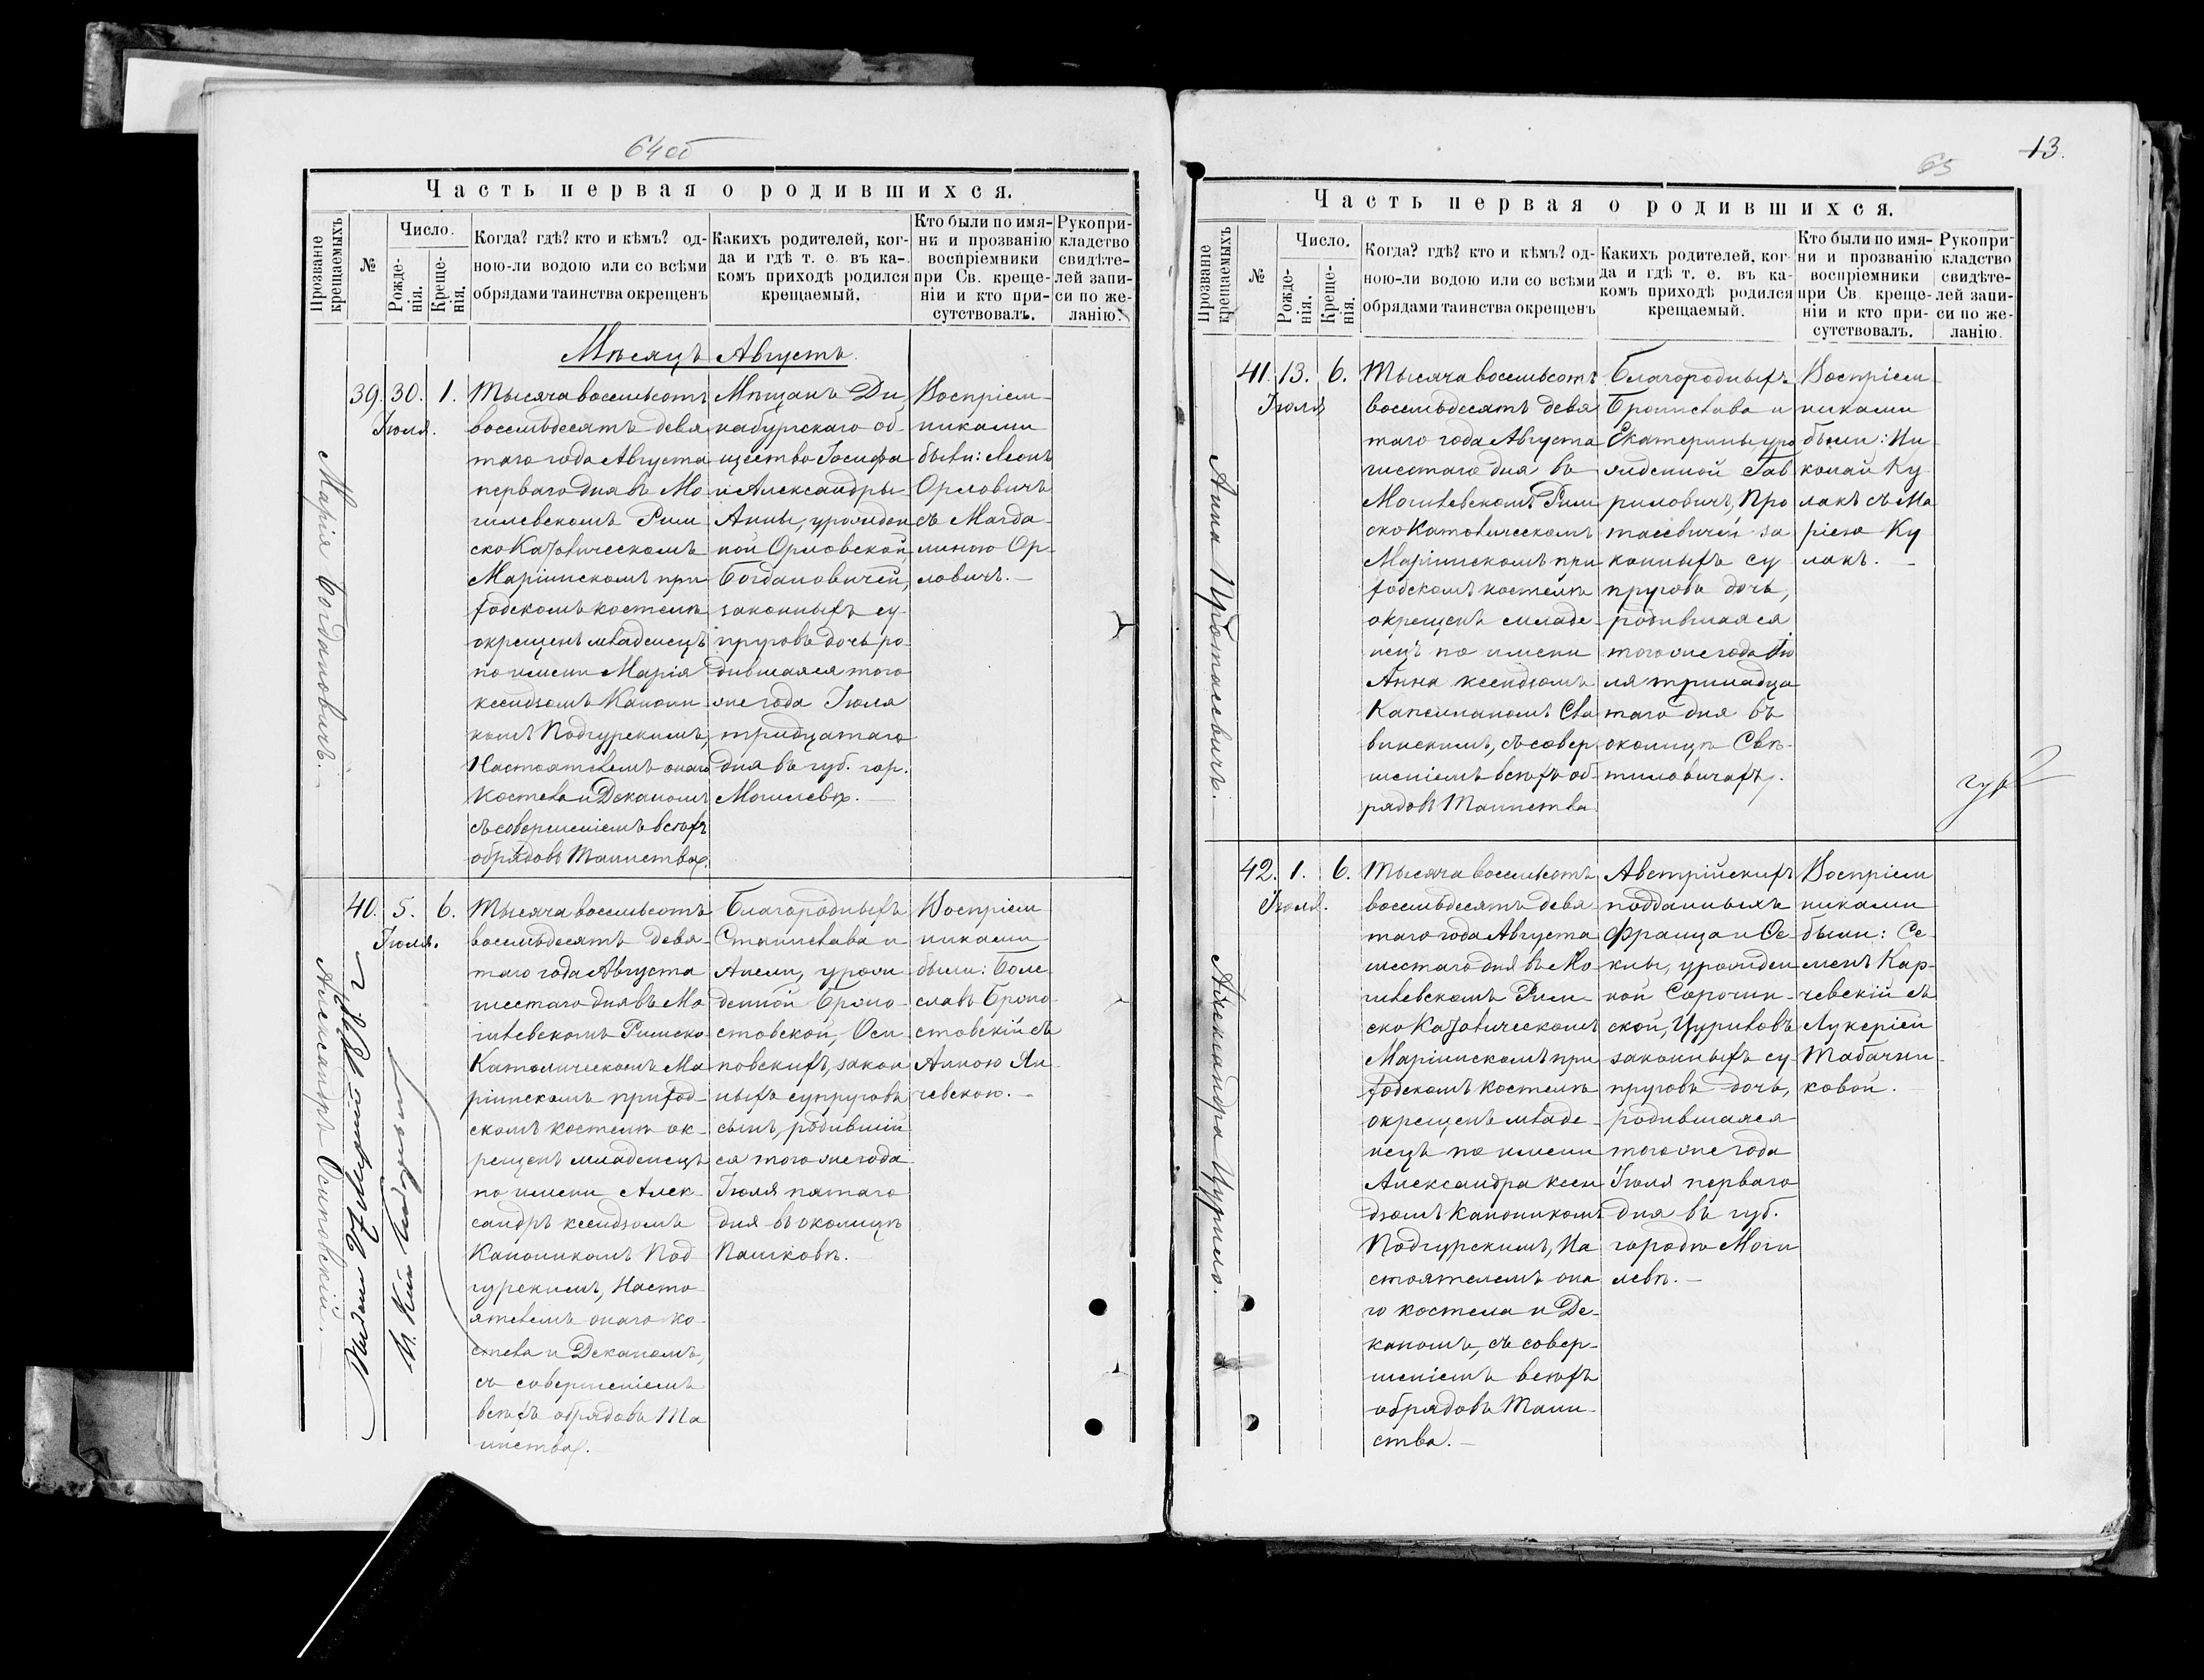 64об
Часть первая о родившихся.
Прозваніе крещаемыхъ
№
Число.
Рожде-
нія.
Креще-
нія.
Когда? гдѣ? кто и кѣмъ? од-
ною-ли водою или со всѣми
обрядами таинства окрещенъ
Какихъ родителей, ког-
да и гдѣ т. е. въ ка-
комъ приходѣ родился
крещаемый.
Кто были по имя-
ни и прозванію
воспріемники
при Св. креще-
ніи и кто при-
сутствовалъ.
Рукопри-
кладство
свидѣте-
лей запи-
си по же-
ланію.
Мѣсяцъ Августъ.
Марія Богдановичъ.
39. 30. 1.
Іюля.
Тысяча восемьсотъ
восемьдесятъ девя
таго года Августа
перваго дня въ Мо
гилевскомъ Рим
ско Католическомъ
Маріинскомъ при
ходскомъ костелѣ
окрещенъ младенецъ
по имени Марія
ксендзомъ Канони
комъ Подгурскимъ,
Настоятелемъ онаго
Костела и Деканомъ
съ совершеніемъ всѣхъ
обрядовъ Таинства.
Мѣщанъ Ди
набургскаго об
щества Іосифа
и Александры
Анны, урожден
ной Орловской,
Богдановичей,
законныхъ су
пруговъ дочь ро
дившаяся того
же года Іюля
тридцатаго
дня въ губ. гор.
Могилевѣ.
Воспріем-
никами
были: Леонъ
Орловичъ
съ Магда-
линою Ор-
ловичъ.
Александръ Осиповскій.
40. 5. 6.
Іюля.
Тысяча восемьсотъ
восемьдесятъ девя-
таго года Августа
шестаго дня въ Мо
гилевскомъ Римско
Католическомъ Ма
ріинскомъ приход-
скомъ костелѣ ок-
рещенъ младенецъ
по имени Алек-
сандръ ксендзомъ
Каноникомъ Под-
гурскимъ, Насто-
ятелемъ онаго ко-
стела и Деканомъ,
съ совершеніемъ
всѣхъ обрядовъ Та
инства.
Благородныхъ
Станислава и
Анели, урож
денной Броно-
стовской, Оси
повскихъ, закон
ныхъ супруговъ
сынъ, родившій
ся того же года
Іюля пятаго
дня въ околицѣ
Пашковѣ.
Воспріем
никами
были: Боле
славъ Броно
стовскій съ
Анною Ян-
чевскою.
13.
65
Часть первая о родившихся.
Прозваніе крещаемыхъ
№
Число.
Рожде-
нія.
Креще-
нія.
Когда? гдѣ? кто и кѣмъ? од-
ною-ли водою или со всѣми
обрядами таинства окрещенъ
Какихъ родителей, ког-
да и гдѣ т. е. въ ка-
комъ приходѣ родился
крещаемый.
Кто были по имя-
ни и прозванію
воспріемники
при Св. креще-
ніи и кто при-
сутствовалъ.
Рукопри-
кладство
свидѣте-
лей запи-
си по же-
ланію.
Анна Протасевичъ.
41. 13. 6.
Іюля
Тысяча восемьсотъ
восемьдесятъ девя
таго года Августа
шестаго дня въ
Могилевскомъ Рим
ско Католическомъ
Маріинскомъ при
ходскомъ костелѣ
окрещенъ младе-
нецъ по имени
Анна ксендзомъ
Капелланомъ Сла
винскимъ, съ совер
шеніемъ всѣхъ об
рядовъ Таинства
Благородныхъ
Бронислава и
Екатерины уро
жденной Гав
риловичъ, Про
тасевичей за
конныхъ су
пруговъ дочь,
родившаяся
того же года Ію
ля тринадца
таго дня въ
околицѣ Свѣ-
тиловичахъ.
Воспріем
никами
были: Ни
колай Ку
лакъ съ Ма
ріею Ку
лакъ.
Александра Цурило.
42. 1. 6.
Іюля.
Тысяча восемьсотъ
восемьдесятъ девя
таго года Августа
шестаго дня въ Мо
гилевскомъ Рим-
ско Католическомъ
Маріинскомъ при
ходскомъ костелѣ
окрещенъ младе-
нецъ по имени
Александра ксен
дзомъ Каноникомъ
Подгурскимъ, На
стоятелемъ она
го костела и Де-
каномъ, съ совер-
шеніемъ всѣхъ
обрядовъ Таин-
ства.
Австрійскихъ
подданныхъ
Франца и Ос
ипы, урожден
ной Сорочин-
ской, Цуриловъ
законныхъ су-
пруговъ дочь,
родившаяся
того же года
Іюля перваго
дня въ губ.
городѣ Моги
левѣ.
Воспріем
никами
были: Се-
менъ Кар-
чевскій съ
Лукеріей
Табачни-
ковой.